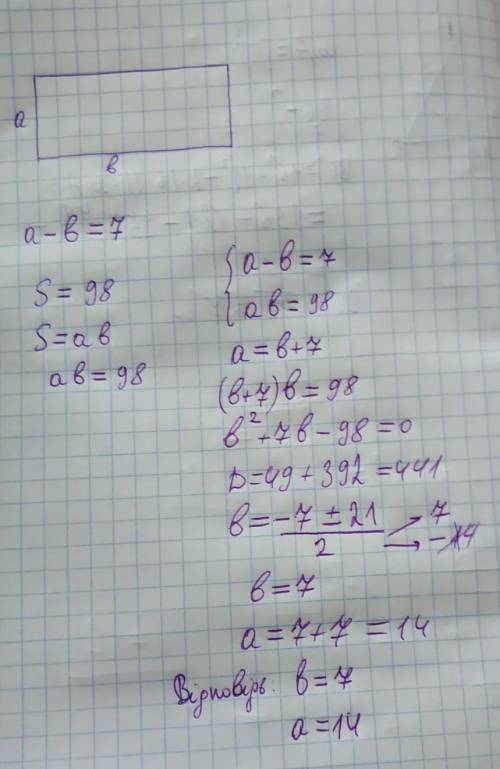 а
в
а - в = 7
S = 98
S = ав
ав = 98
{ а - в = 7
ав = 98
а = в + 7
(в+7)в = 98
в² + 7в - 98 = 0
D = 49 + 392 = 441
в = (-7 ± 21)/2 → 7
→ -14
в = 7
а = 7 + 7 = 14
Відповідь: в = 7
а = 14